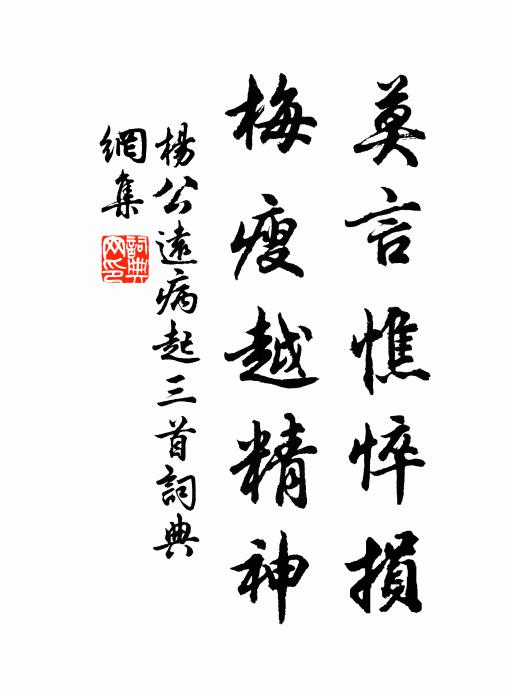 莫言憔悴損
梅瘦越精神
楊公遠病起三首詞典
網集
詞典
网印